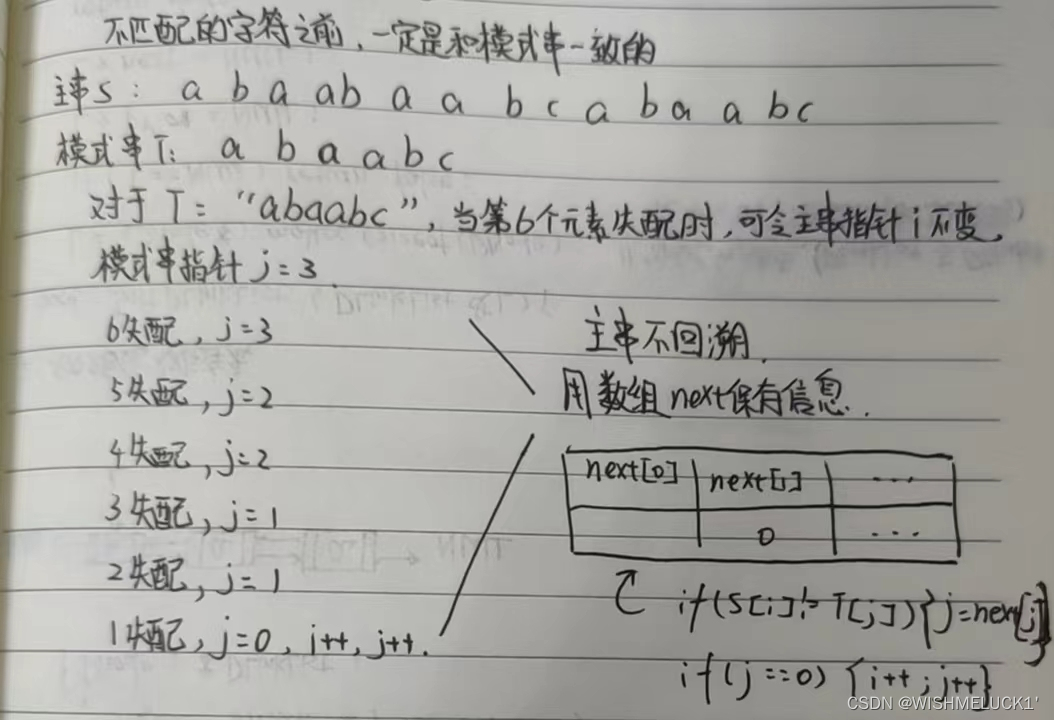 不匹配的字符之前，一定是和模式串一致的
主串S： a b a a b a a b c a b a a b c
模式串T： a b a a b c
对于T="abaabc"，当第6个元素失配时，可令主串指针i不变，
模式串指针j=3
6失配，j=3
5失配，j=2
4失配，j=2
3失配，j=1
2失配，j=1
1失配，j=0，i++，j++.
主串不回溯.
用数组next保有信息.
next[0] next[1] ...
0 ...
if(S[i]!=T[j]){j=next[j]}
if(j==0){i++;j++}
CSDN @WISHMELUCK1'